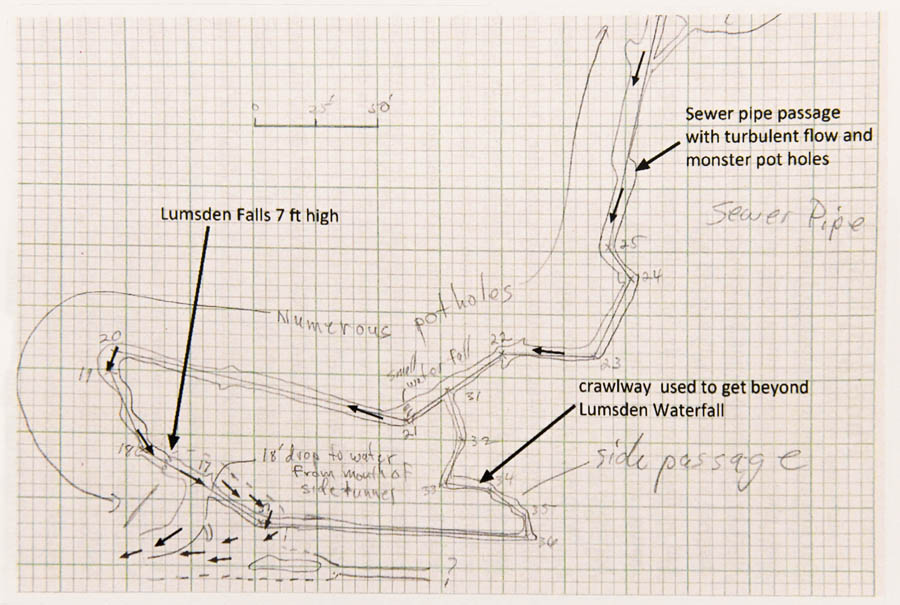 0 25' 50'
Sewer pipe passage
with turbulent flow and
monster pot holes
Sewer Pipe
Lumsden Falls 7 ft high
25
24
Numerous potholes
20
22
small
water fall
23
19
crawlway used to get beyond
Lumsden Waterfall
31
21
32
18
17
18' drop to water
from mouth of
side tunnel
side passage
33
34
35
36
?